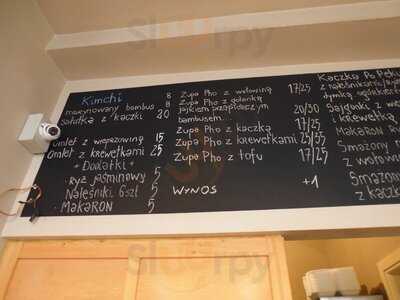 Kimchi 8
marynowany bambus 8
sałatka z kaczki 20
Omlet z wieprzowiną 15
Omlet z krewetkami 25
+ Dodatki +
- ryż jaśminowy 5
Naleśniki 6szt 5
- MAKARON 5
Zupa Pho z wołowiną 17/25
Zupa Pho z golonką
jajkiem przepiórczym
bambusem... 20/30
Zupa Pho z kaczką 17/25
Zupa Pho z krewetkami 25/35
Zupa Pho z tofu 17/25
WYNOS +1
Kaczka Po Pek
z naleśnikami,
dymką, ogórkiem
Sajgonki z w
i krewetką
Makaron R
Smażony m
z wołowin
Smażony
z kaczk